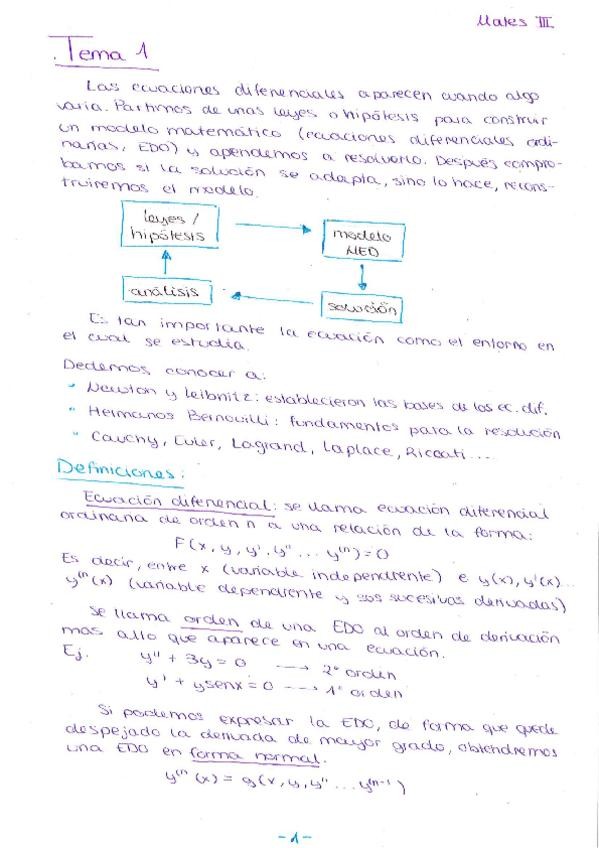 Mates III
Tema 1
Las ecuaciones diferenciales aparecen cuando algo
varia. Partimos de unas leyes o hipótesis para construir
un modelo matemático (ecuaciones diferenciales ordi-
narias, EDO) y apendemos a resolverlo. Después compro-
bamos si la solución se adapta, sino lo hace, recons-
truiremos el modelo.
leyes /
hipótesis
modelo
MED
análisis
solución
Es tan importante la ecuación como el entorno en
el cual se estudia.
Debemos conocer a:
- Newton y Leibnitz: establecieron las bases de las ec. dif.
- Hermanos Bernouilli: fundamentos para la resolución
- Cauchy, Euler, Lagrand, Laplace, Riccati...
Definiciones:
Ecuación diferencial: se llama ecuación diferencial
ordinaria de orden n a una relación de la forma:
F(x, y, y', y'' ... y⁽ⁿ⁾) = 0
Es decir, entre x (variable independiente) e y(x), y'(x)...
y⁽ⁿ⁾(x) (variable dependiente y sus sucesivas derivadas)
Se llama orden de una EDO al orden de derivación
mas alto que aparece en una ecuación.
Ej. y'' + 3y = 0 ---> 2º orden
y' + ysenx = 0 ---> 1º orden
Si podemos expresar la EDO, de forma que quede
despejado la derivada de mayor grado, obtendremos
una EDO en forma normal.
y⁽ⁿ⁾(x) = g(x, y, y'' ... y⁽ⁿ⁻¹⁾)
-1-